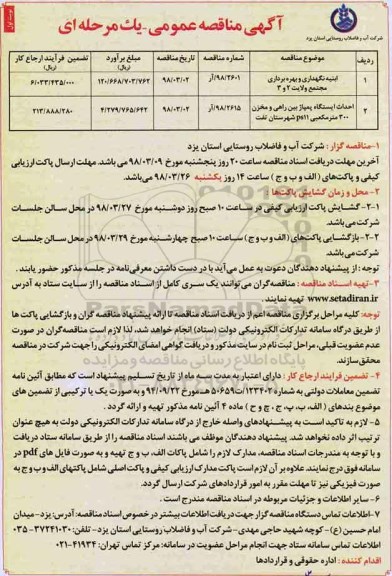 نوبت اول
آگهی مناقصه عمومی - یك مرحله ای
شرکت آب و فاضلاب روستایی استان یزد
ردیف موضوع مناقصه شماره مناقصه تاریخ مناقصه مبلغ برآورد (ریال) تضمین فرآیند ارجاع کار (ریال)
۱ ابنیه نگهداری و بهره برداری مجتمع ولایت ۲ و ۳ ۹۸/۲۶۰۱/آر ۹۸/۰۳/۰۲ ۱۲۰/۶۶۸/۷۰۳/۷۶۲ ۶/۰۳۳/۴۳۵/۰۰۰
۲ احداث ایستگاه پمپاژ بین راهی و مخزن ۳۰۰ مترمکعبی ps11 شهرستان تفت ۹۸/۲۶۱۵/آر ۹۸/۰۳/۰۲ ۴/۲۷۹/۷۶۵/۶۴۲ ۲۱۳/۸۸۸/۲۸۰
۱-مناقصه گزار : شرکت آب و فاضلاب روستایی استان یزد
آخرین مهلت دریافت اسناد مناقصه ساعت ۲۰ روز پنجشنبه مورخ ۹۸/۰۳/۰۹ می باشد. مهلت ارسال پاکت ارزیابی
کیفی و پاکت‌های ( الف و ب و ج ) ساعت ۱۴ روز یکشنبه ۹۸/۰۳/۲۶ می‌باشد.
۲- محل و زمان گشایش پاکت‌ها :
۲-۱- گشایش پاکت ارزیابی کیفی در ساعت ۱۰ صبح روز دوشنبه مورخ ۹۸/۰۳/۲۷ در محل سالن جلسات
شرکت می‌باشد.
۲-۲- بازگشایی پاکت‌های ( الف و ب و ج ) ساعت ۱۰ صبح چهارشنبه مورخ ۹۸/۰۳/۲۹ در محل سالن جلسات
شرکت می‌باشد.
توجه : از پیشنهاد دهندگان دعوت به عمل می‌آید با در دست داشتن معرفی‌نامه در جلسه مذکور حضور یابند .
۳- تهیه اسناد مناقصه : مناقصه‌گران می‌توانند یک سری کامل از اسناد مناقصه را از سایت ستاد به آدرس
www.setadiran.ir تهیه نمایند .
توجه: کلیه مراحل برگزاری مناقصه اعم از دریافت اسناد مناقصه تا ارائه پیشنهاد مناقصه گران و بازگشایی پاکت ها
از طریق درگاه سامانه تدارکات الکترونیکی دولت (ستاد) انجام خواهد شد، لذا لازم است مناقصه‌گران در صورت
عدم عضویت قبلی، مراحل ثبت نام در سایت مذکور و دریافت گواهی امضای الکترونیکی را جهت شرکت در مناقصه
محقق سازند.
۴- تضمین فرایند ارجاع کار : دارای اعتبار به مدت سه ماه از تاریخ تسلیم پیشنهاد است که مطابق آئین نامه
تضمین معاملات دولتی به شماره ۱۲۳۴۰۲/ت۵۰۶۵۹ هـ مورخ ۹۴/۰۹/۲۲ و به صورت یک یا ترکیبی از تضمین های
موضوع بندهای ( الف، ب، پ، ج، چ و ح ) ماده ۴ آئین نامه مذکور تهیه و ارائه گردد .
۵- لازم به تاکید است به پیشنهادهای واصله خارج از درگاه سامانه تدارکات الکترونیکی دولت به هیچ عنوان
ترتیب اثر داده نخواهد شد. پیشنهاد دهندگان موظف می باشند اسناد مناقصه را از طریق سامانه ستاد دریافت
و با توجه به مندرجات اسناد مناقصه، مدارک لازم را شامل پاکات الف، ب و ج تهیه و به صورت فایل های pdf در
سامانه فوق درج نمایند. علاوه بر آن لازم است پاکت مدارک ارزیابی کیفی و پاکت اصلی شامل پاکتهای الف و ب و ج به
صورت فیزیکی نیز تا مهلت مقرر به امور قراردادهای شرکت ارسال گردد.
۶- سایر اطلاعات و جزئیات مربوطه در اسناد مناقصه مندرج است .
۷-اطلاعات تماس دستگاه مناقصه گزار جهت دریافت اطلاعات بیشتر در خصوص اسناد مناقصه: آدرس: یزد- میدان
امام حسین (ع) - کوچه شهید حاجی مهدی- شرکت آب و فاضلاب روستایی استان یزد- تلفن: ۳۷۲۴۱۰۳۰- ۰۳۵
اطلاعات تماس سامانه ستاد جهت انجام مراحل عضویت در سامانه: مرکز تماس تهران: ۴۱۹۳۴-۰۲۱
اقدام کننده : اداره حقوقی و قراردادها